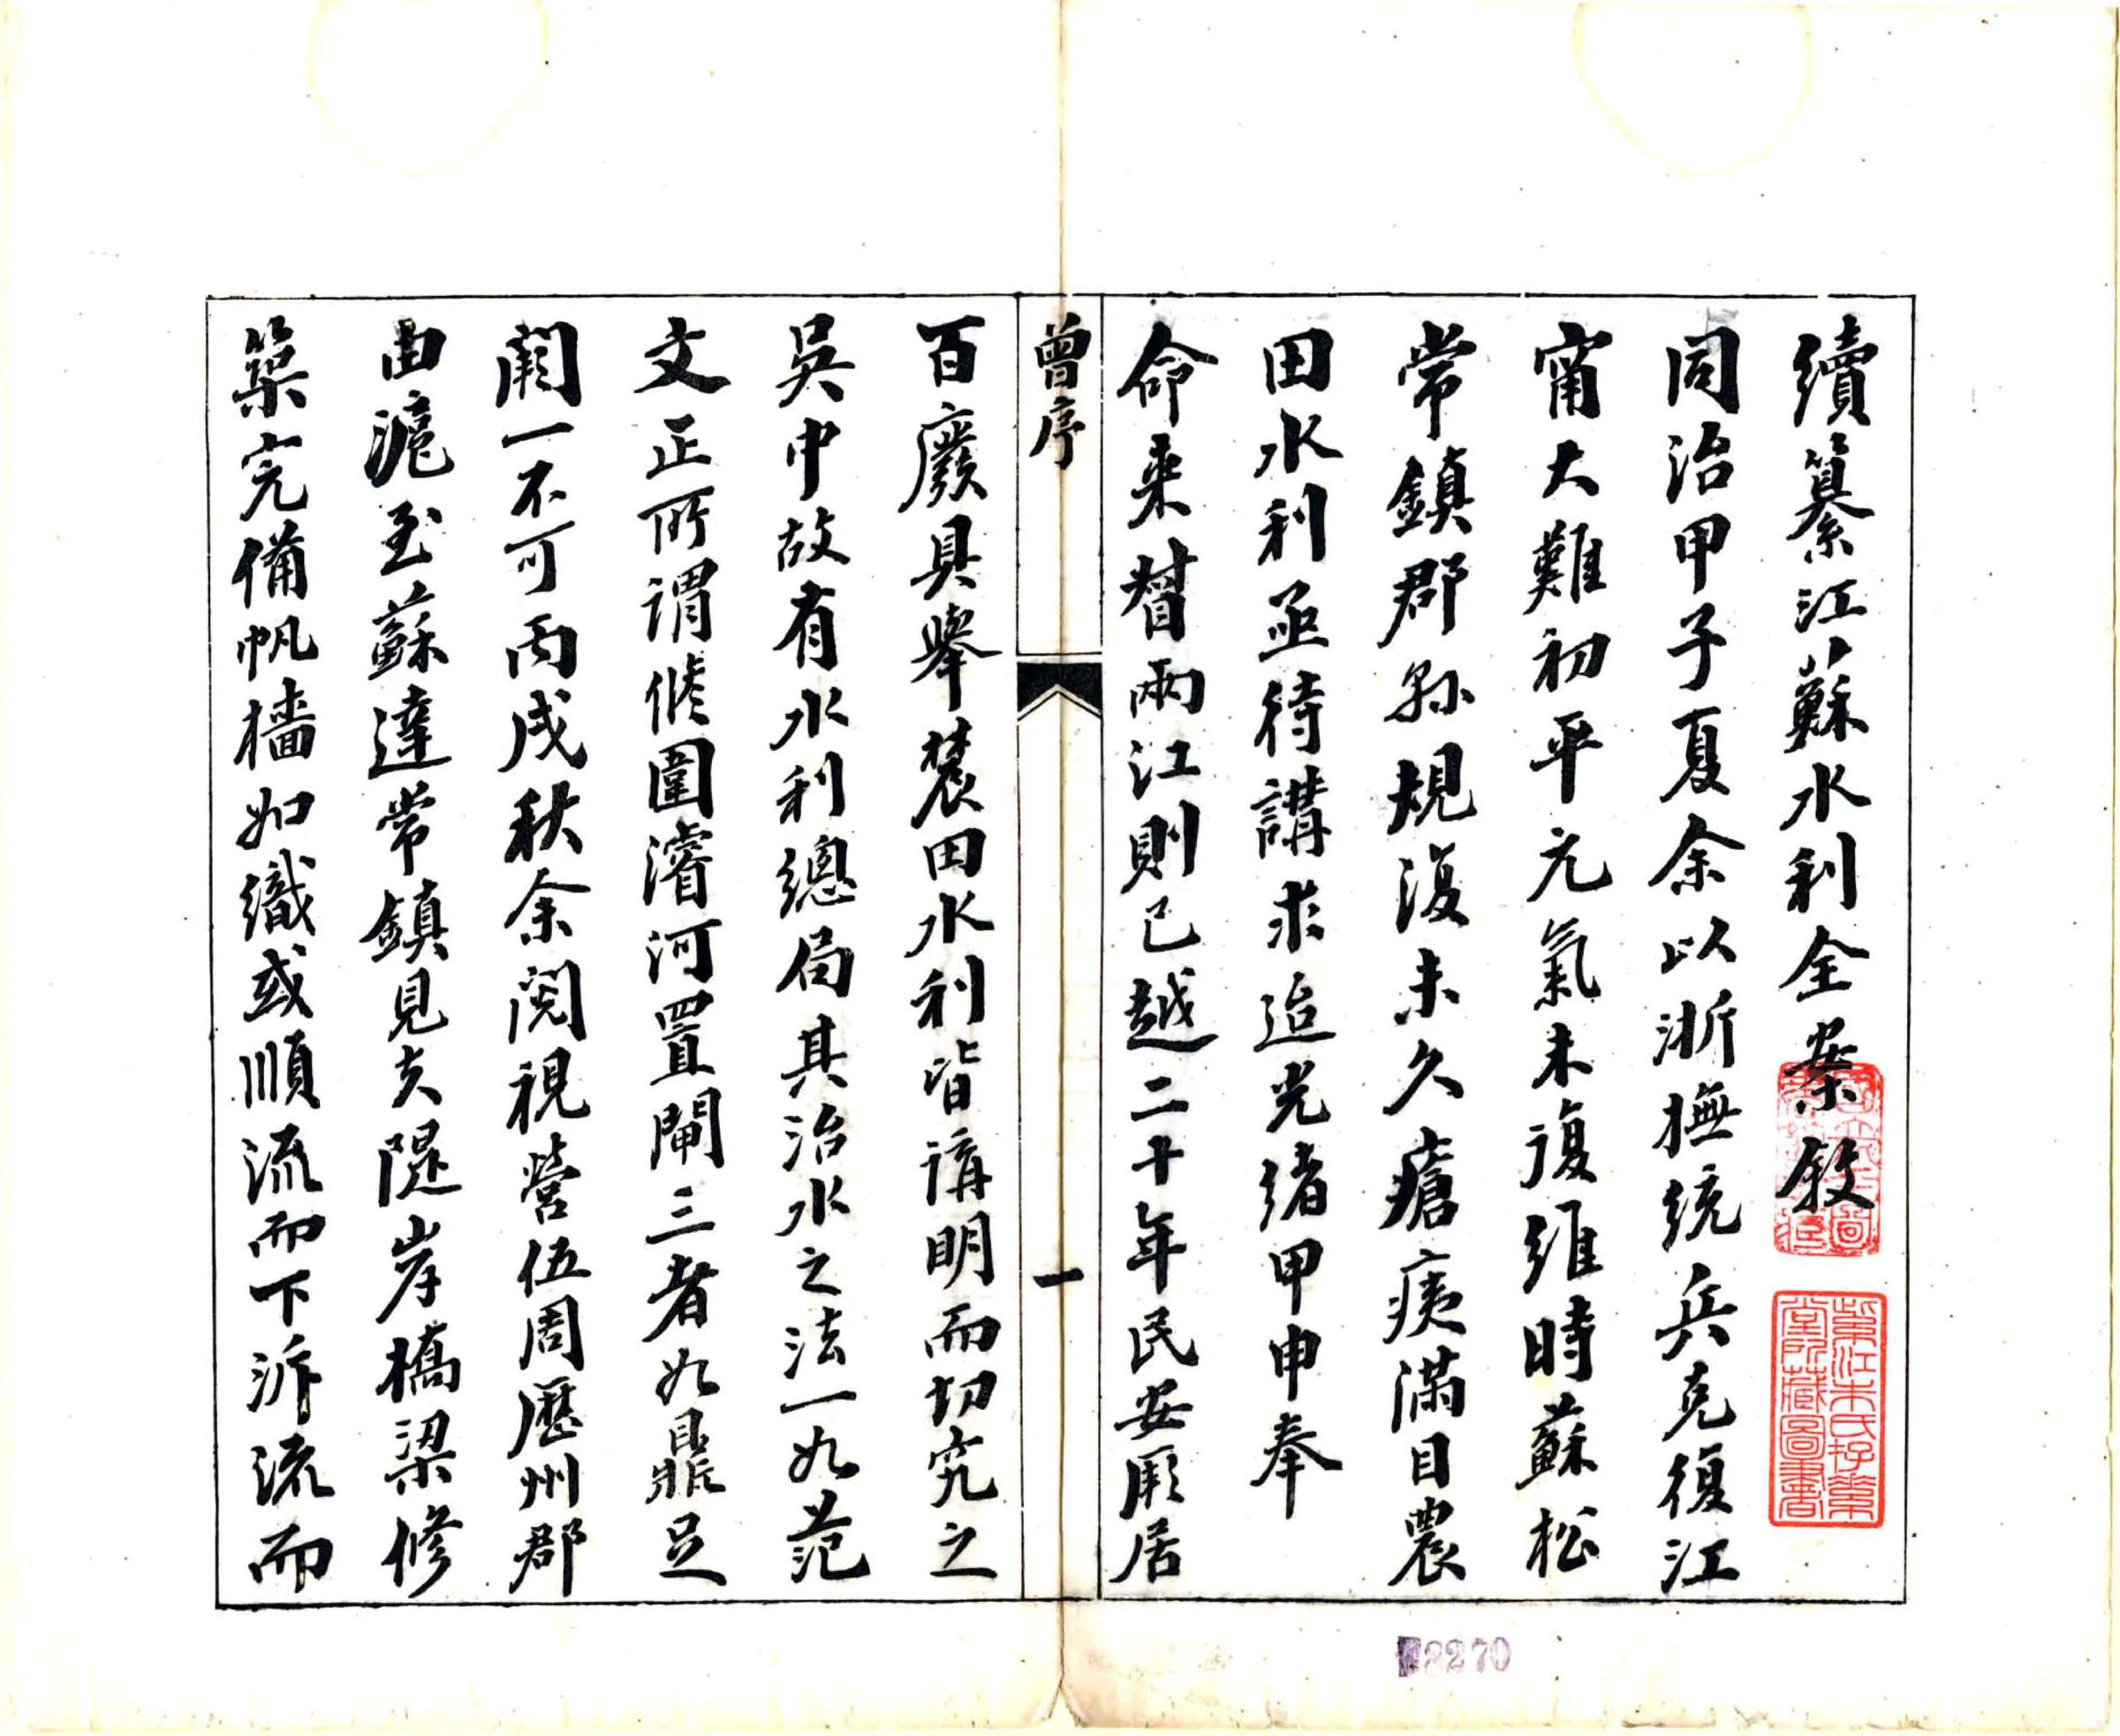 續纂江蘇水利全案敘
同治甲子夏余以浙撫統兵克復江
甯大難初平元氣未復維時蘇松
常鎮郡縣規復未久瘡痍滿目農
田水利亟待講求迨光緒甲申奉
命來督兩江則已越二十年民安厥居
曾序
一
百廢具舉農田水利皆講明而切究之
吳中故有水利總局其治水之法一如范
文正所謂修圍濬河置閘三者如鼎足
闕一不可丙戌秋余閱視營伍周歷州郡
由滬至蘇達常鎮見夫隄岸橋梁修
築完備帆檣如織或順流而下泝流而
2270